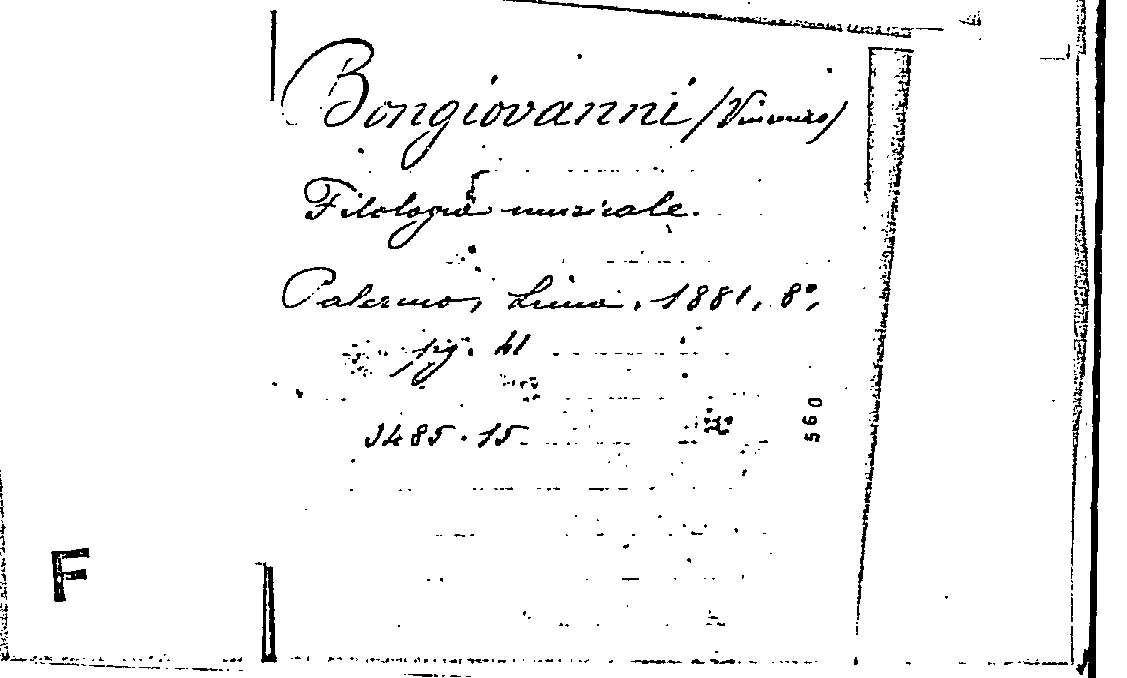 Bongiovanni (Vincenzo)
Filologia musicale.
Palermo, Lima, 1881, 8º,
pg. 41
3485.15
560
F